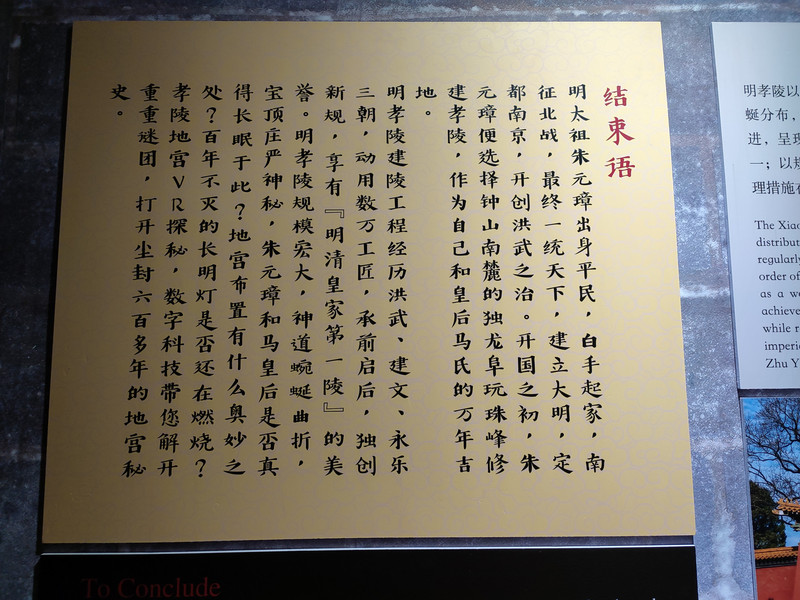 结束语
明太祖朱元璋出身平民，白手起家，南
征北战，最终一统天下，建立大明，定
都南京，开创洪武之治。开国之初，朱
元璋便选择钟山南麓的独龙阜玩珠峰修
建孝陵，作为自己和皇后马氏的万年吉
地。
明孝陵建陵工程经历洪武、建文、永乐
三朝，动用数万工匠，承前启后，独创
新规，享有『明清皇家第一陵』的美
誉。明孝陵规模宏大，神道蜿蜒曲折，
宝顶庄严神秘，朱元璋和马皇后是否真
得长眠于此？地宫布置有什么奥妙之
处？百年不灭的长明灯是否还在燃烧？
孝陵地宫VR探秘，数字科技带您解开
重重谜团，打开尘封六百多年的地宫秘
史。
To Conclude
明孝陵以
蜒分布，
进，呈现
一；以规
理措施在
The Xiao
distribut
regularly
order of
as a w
achieve
while r
imperi
Zhu Y